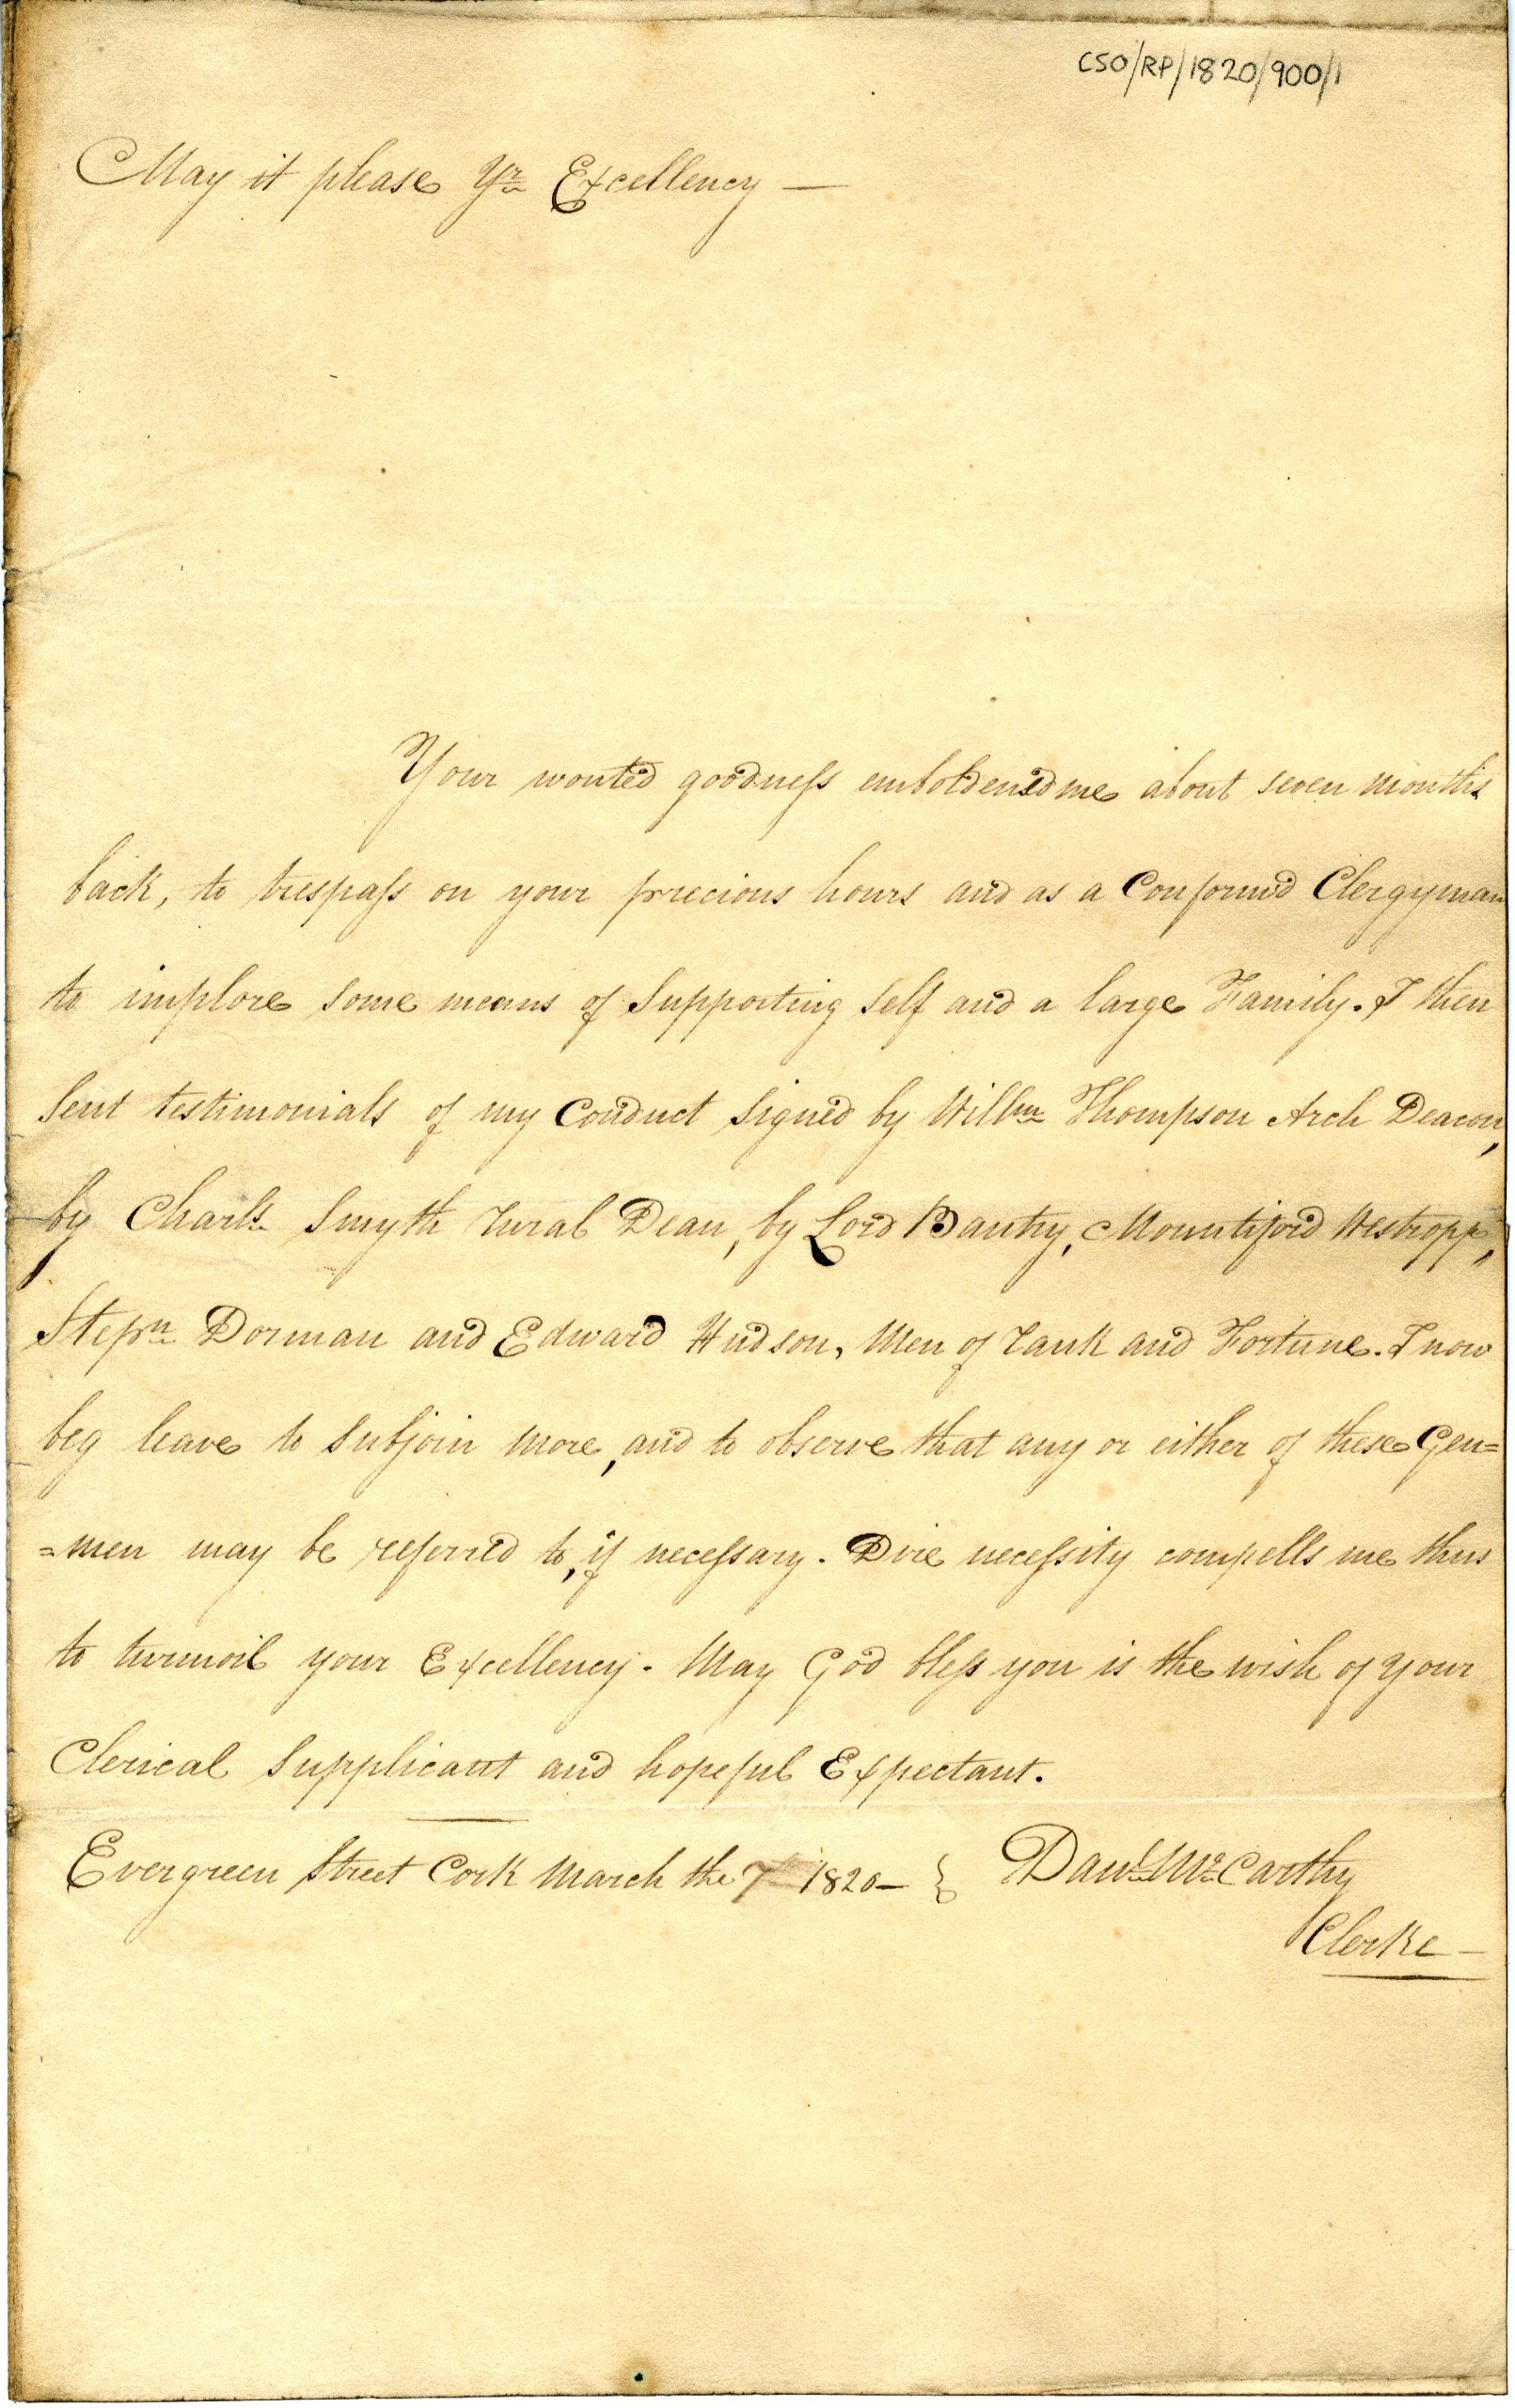 CSO/RP/1820/900/1
May it please Yr Excellency —
Your wonted goodness emboldened me about seven months
back, to trespass on your precious hours and as a Conformd Clergyman
to implore some means of Supporting self and a large Family. I then
sent testimonials of my Conduct signed by Willm Thompson Arch Deacon,
by Charls Smyth rural Dean, by Lord Bantry, Mountiford Westropp,
Stepn Dorman and Edward Hudson, Men of rank and Fortune. I now
beg leave to subjoin more, and to observe that any or either of these Gen=
=men may be referred to, if necessary. Dire necessity compells me thus
to turmoil your Excellency. May God bless you is the wish of your
Clerical Supplicant and hopeful Expectant.
Evergreen Street Cork March the 7 1820 — } Danl McCarthy
Clerke —